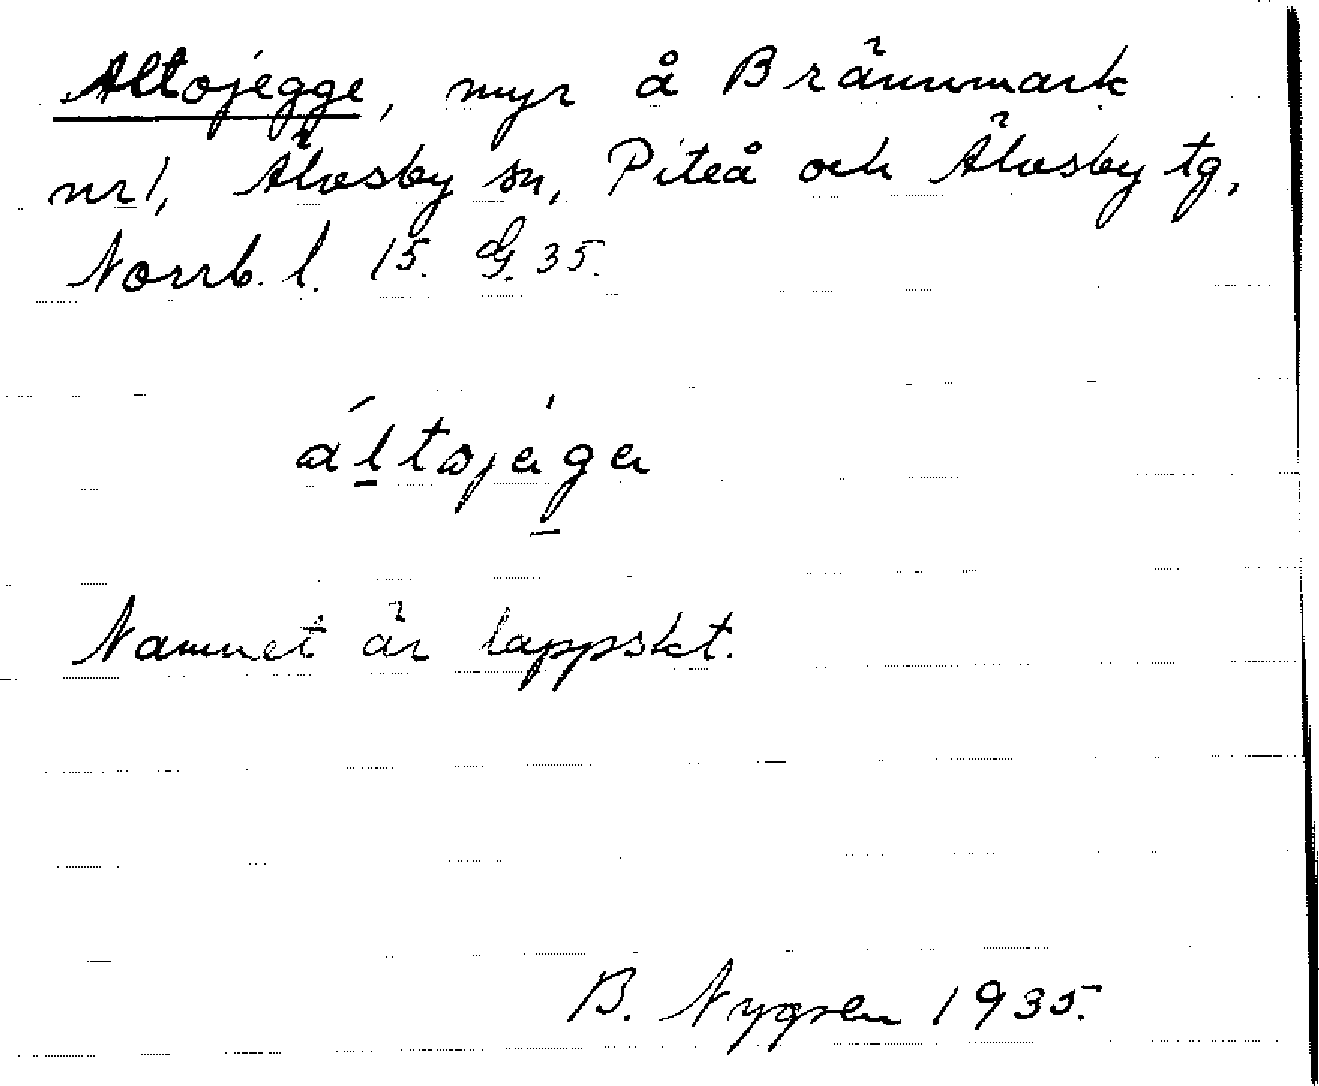 Altojegge, myr å Brännmark
nr 1, Älvsby sn, Piteå och Älvsby tg,
Norrb. l. 15. G. 35.
áltojega
Namnet är lappskt.
B. Nygren 1935.